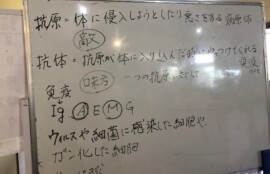 抗原=体に侵入しようとしたり悪さをする病原体
敵
抗体=抗原が体に入り込んだ時にやっつけてくれる
免疫
免疫 味方 一つの抗原に対して
Ig A E M G
ウィルスや細菌に感染した細胞や
ガン化した細胞